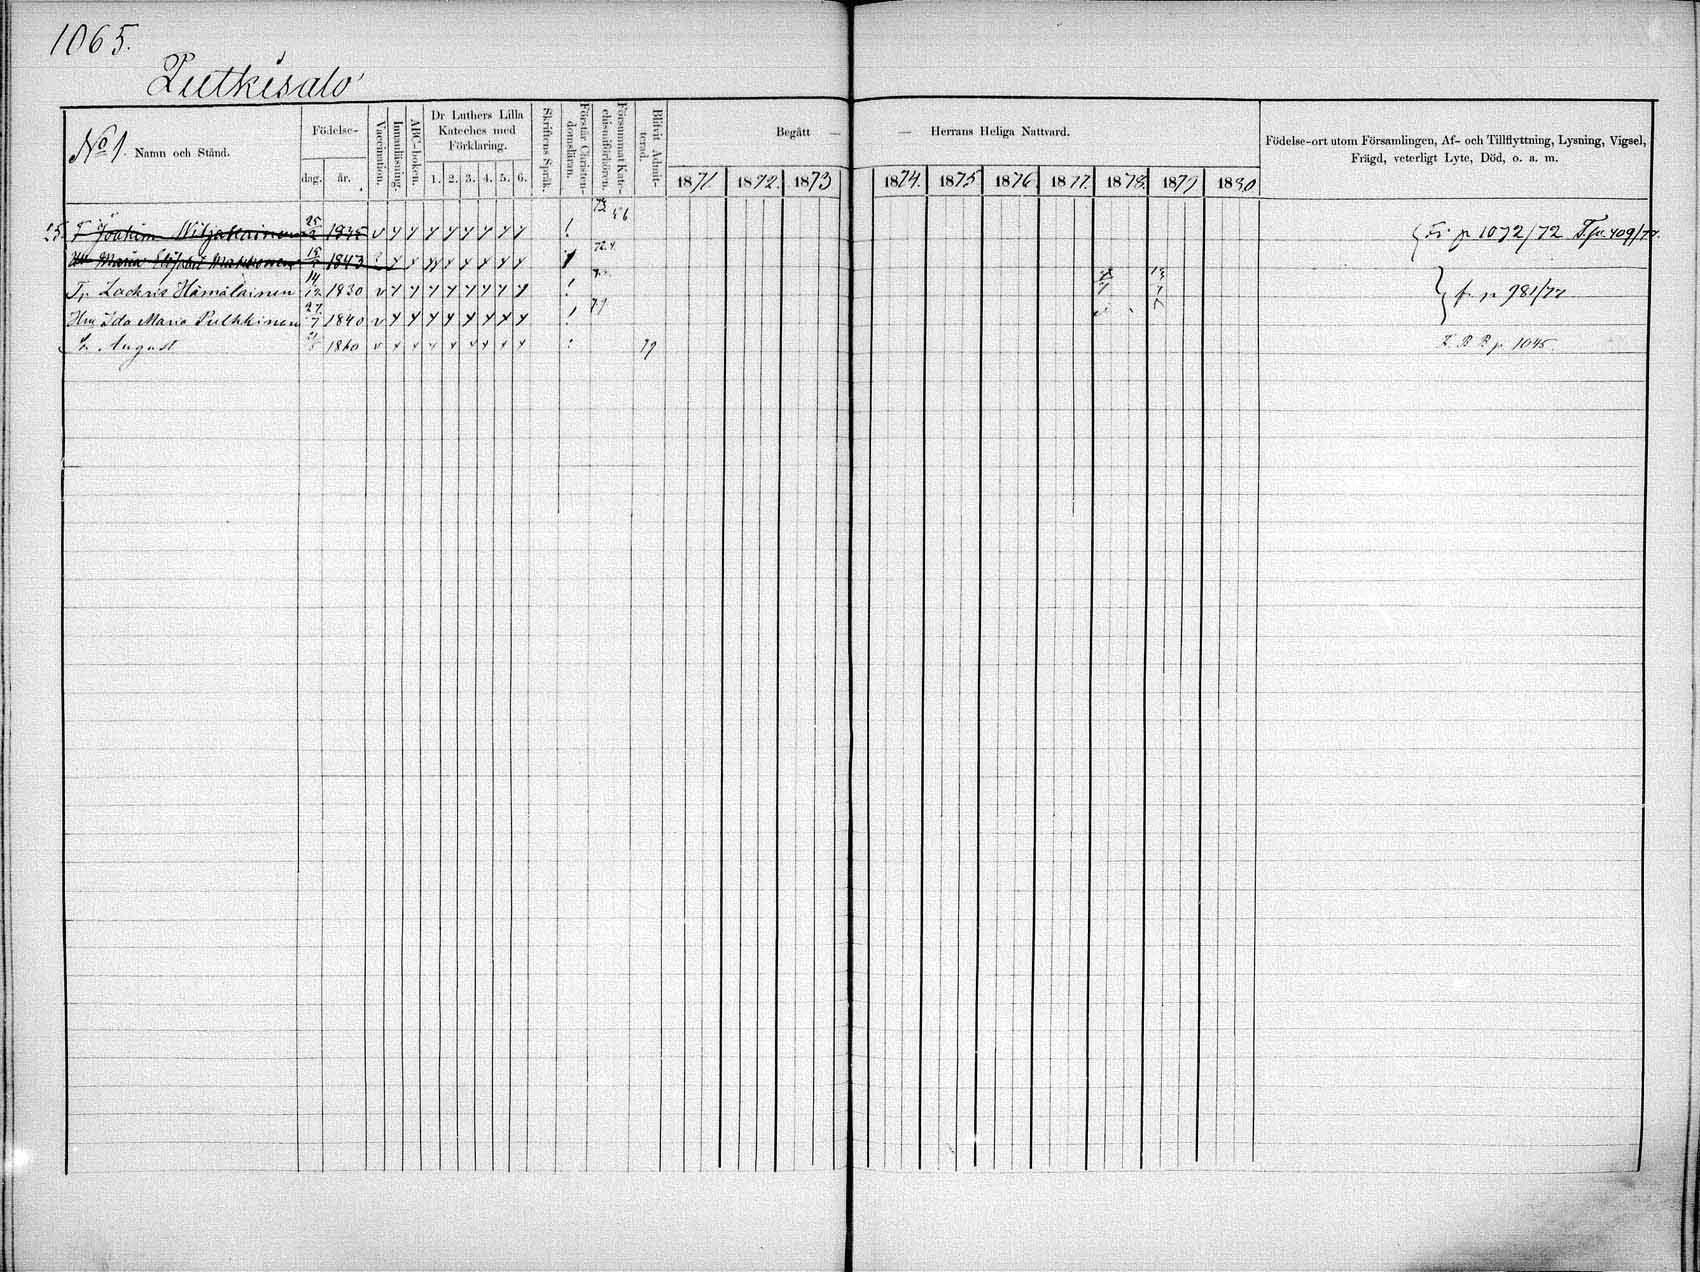 1065.
Putkisalo
No 1. Namn och Stånd.
Födelse-
dag. år.
Vaccination.
Innanläsning.
ABC-boken.
Dr Luthers Lilla
Kateches med
Förklaring.
1. 2. 3. 4. 5. 6.
Skriftens Språk.
Förstår Christen-
domsläran.
Försummat Kate-
chismiförhören.
Blifvit Admit-
terad.
Begått — — Herrans Heliga Nattvard.
1871. 1872. 1873 1874. 1875 1876. 1877. 1878. 1879 1880
Födelse-ort utom Församlingen, Af- och Tillflyttning, Lysning, Vigsel,
Frägd, veterligt Lyte, Död, o. a. m.
25. T. Joakim Wiljakainen 25/2 1835 v ! 73 56 Fr. p 1072/72 T. p. 409/77.
Hu Maria Makkonen 15 1843 72.4
Tp. Zachris Hämäläinen 14/12 1830 v ! fr p 981/77
Hu Ida Maria Pulkkinen 27/7 1840 v ! 79
So. August 1860 v 79 L. B B p 1045.